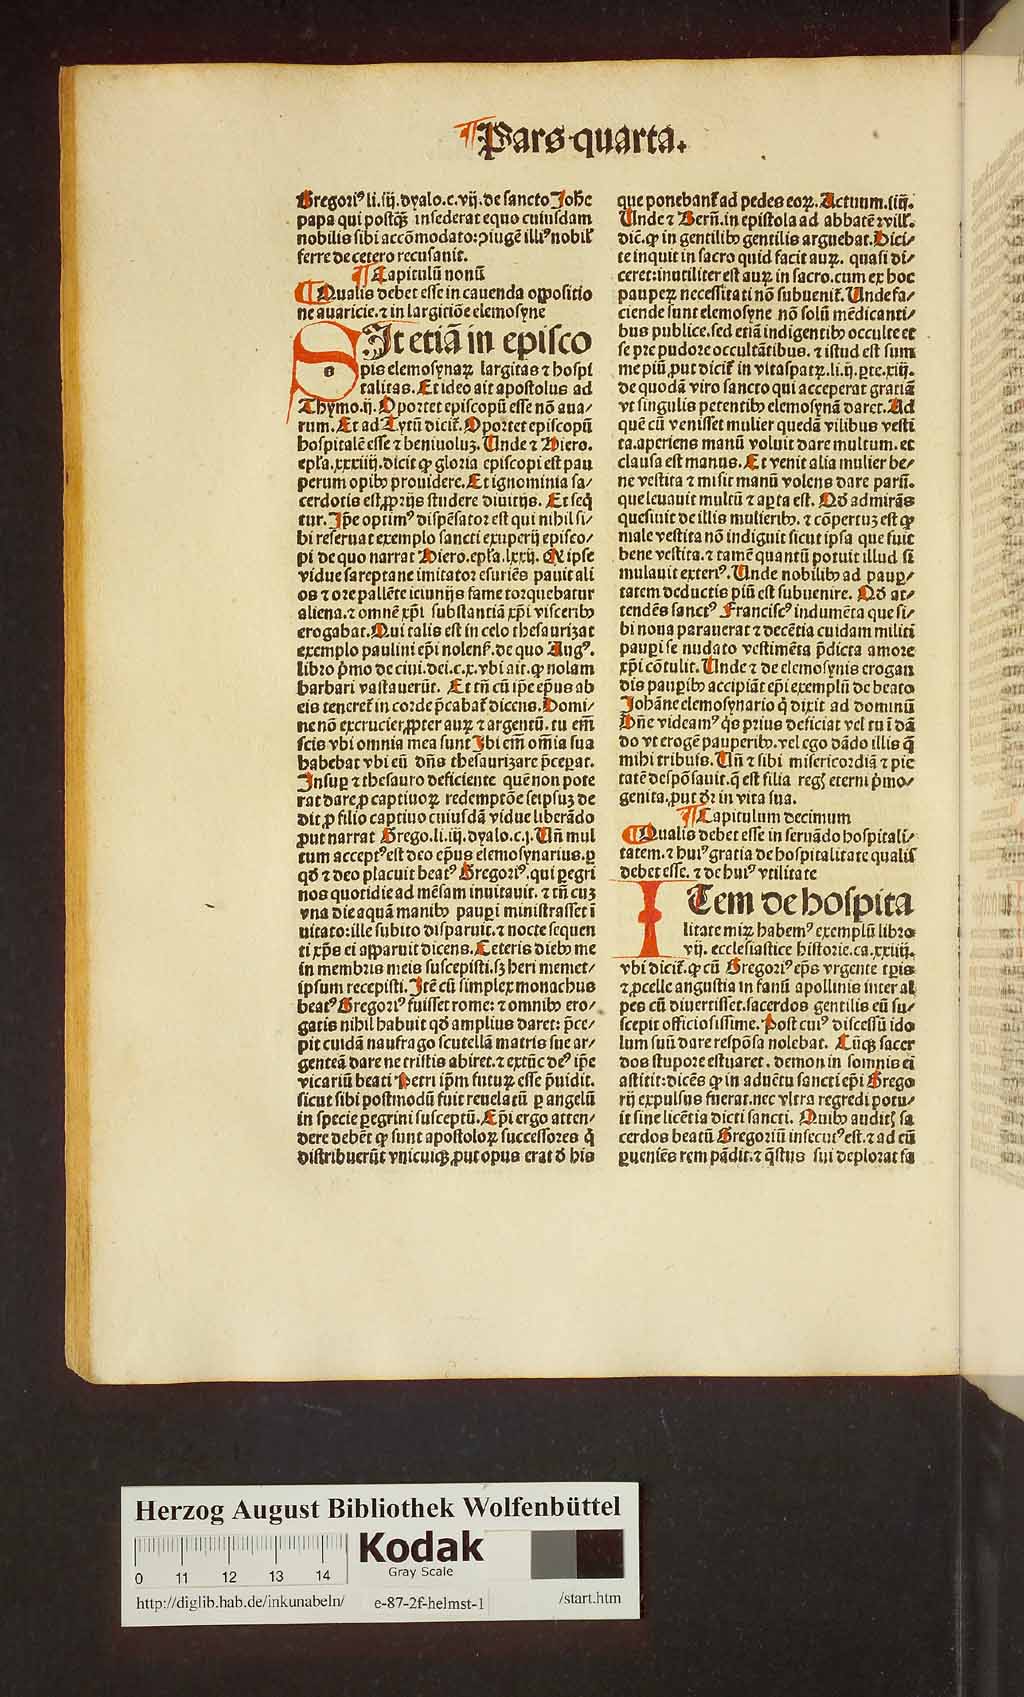 ¶ Pars quarta.
Gregoriꝰ li. iij. dyalo. c. vij. de sancto Johe
papa qui postqꝫ insederat equo cuiusdam
nobilis sibi accōmodato: ꝯiugē illiꝰ nobil
ferre de cetero recusanit.
¶ Capitulū nonū
¶ Qualis debet esse in cauenda oppositio
ne auaricie. ⁊ in largitiōe elemosyne
SIt etiā in episco
s
pis elemosynaꝝ largitas ⁊ hospi
talitas. Et ideo ait apostolus ad
Thymo. ij. Oportet episcopū esse nō aua⸗
rum. Et ad Tytū dicit̄. Oportet episcopū
hospitalē esse ⁊ beniuolūꝫ. Unde ⁊ Hiero.
epl̄a. xxxiiij. dicit ꝙ gloria episcopi est pau
perum opibꝰ prouidere. Et ignominia sa⸗
cerdotis est ꝓprijs studere diuitijs. Et seq̄
tur. Ip̄e optimꝰ dispēsator est qui nihil si⸗
bi reseruat exemplo sancti exuperij episco⸗
pi de quo narrat Hiero. epl̄a. lxxij. Q ipse
vidue sareptane imitator esuriēs pauit ali
os ⁊ ore pallēte ieiunijs fame torquebatur
aliena. ⁊ omnē xp̄i substantiā xp̄i visceribꝰ
erogabat. Qui talis est in celo thesaurizat
exemplo paulini ep̄i nolens̄. de quo Augꝰ.
libro p̄mo de ciui. dei. c. x. vbi ait. ꝙ nolam
barbari vastauerūt. Et tn̄ cū ip̄e ep̄us ab
eis teneret̄ in corde p̄cabat̄ dicens. Domi⸗
ne nō excrucier ꝓpter auꝝ ⁊ argentū. tu em̄
scis vbi omnia mea sunt Ibi em̄ om̄ia sua
habebat vbi eū dn̄s thesaurizare p̄ceꝑat.
Insuꝑ ⁊ thesauro deficiente quē non pote
rat dare ꝓ captiuoꝝ redemptōe seipsuꝫ de
dit ꝓ filio captiuo cuiusdā vidue liberādo
ꝓut narrat Grego. li. iij. dyalo. c. j. Un̄ mul
tum acceptꝰ est deo ep̄us elemosynarius. ꝑ
qd̄ ⁊ deo placuit beatꝰ Gregoriꝰ. qui ꝑegri
nos quotidie ad mēsam inuitauit. ⁊ tn̄ cuꝫ
vna die aquā manibꝰ pauꝑi ministrasset ī
uitato: ille subito disparuit. ⁊ nocte sequen
ti xp̄s ei apparuit dicens. Ceteris diebꝰ me
in membris meis suscepisti. sꝫ heri memet⸗
ipsum recepisti. Itē cū simplex monachus
beatꝰ Gregoriꝰ fuisset rome: ⁊ omnibꝰ ero⸗
gatis nihil habuit qd̄ amplius daret: p̄ce⸗
pit cuidā naufrago scutellā matris sue ar⸗
genteā dare ne tristis abiret. ⁊ extūc deꝰ ip̄e
vicariū beati Petri ip̄m futuꝝ esse p̄uidit.
sicut sibi postmodū fuit reuelatū ꝑ angelū
in specie ꝑegrini susceptū. Ep̄i ergo atten⸗
dere debēt ꝙ sunt apostoloꝝ successores q̄
distribuerūt vnicuiqꝫ ꝓut opus erat d̄ his
que ponebant̄ ad pedes eoꝝ. Actuum. iiij.
Unde ⁊ Berū. in epistola ad abbatē ruill.
dic̄. ꝙ in gentilibꝰ gentilis arguebat. Dici⸗
te inquit in sacro quid facit auꝝ. quasi di⸗
ceret: inutiliter est auꝝ in sacro. cum ex hoc
pauꝑeꝝ necessitati nō subuenit̄. Unde fa⸗
ciende sunt elemosyne nō solū mēdicanti⸗
bus publice. sed etiā indigentibꝰ occulte et
se pre pudore occultātibus. ⁊ istud est sum
me piū ꝓut dicit̄ in vitaspatꝝ. li. ij. ꝑte. xiij.
de quodā viro sancto qui acceperat gratiā
vt singulis petentibꝰ elemosynā daret. Ad
quē cū venisset mulier quedā vilibus vesti
ta. aperiens manū voluit dare multum. et
clausa est manus. Et venit alia mulier be⸗
ne vestita ⁊ misit manū volens dare parū.
que leuauit multū ⁊ aꝑta est. Qd̄ admirās
quesiuit de illis mulieribꝰ. ⁊ cōpertuꝫ est ꝙ
male vestita nō indiguit sicut ipsa que fuit
bene vestita. ⁊ tamē quantū potuit illud si
mulauit exteriꝰ. Unde nobilibꝰ ad pauꝑ⸗
tatem deductis piū est subuenire. Qd̄ at⸗
tendēs sanctꝰ Franciscꝰ indumēta que si⸗
bi noua parauerat ⁊ decētia cuidam militi
pauꝑi se nudato vestimēta p̄dicta amore
xp̄i cōtulit. Unde ⁊ de elemosynis erogan
dis pauꝑibꝰ accipiāt ep̄i exemplū de beato
Johāne elemosynario q̄ dixit ad dominū
Dn̄e videamꝰ q̄s prius deficiat vel tu ī dā
do vt erogē pauperibꝰ. vel ego dādo illis q̄
mihi tribuis. Un̄ ⁊ sibi misericordiā ⁊ pie
tatē despōsauit. q̄ est filia regꝭ eterni p̄mo⸗
genita. ꝓut dr̄ in vita sua.
¶ Capitulum decimum
¶ Qualis debet esse in seruādo hospitali⸗
tatem. ⁊ huiꝰ gratia de hospitalitate qualis
debet esse. ⁊ de huiꝰ vtilitate
ITem de hospita
litate miꝝ habemꝰ exemplū libro
vij. ecclesiastice historie. ca. xxiiij.
vbi dicit̄. ꝙ cū Gregoriꝰ ep̄s vrgente tꝑis
⁊ ꝓcelle angustia in fanū apollinis inter al
pes cū diuertisset. sacerdos gentilis eū su⸗
scepit officiosissime. Post cuiꝰ discessū ido
lum suū dare respōsa nolebat. Cūqꝫ sacer
dos stupore estuaret. demon in somnis ei
astitit: dicēs ꝙ in aduētu sancti ep̄i Grego
rij expulsus fuerat. nec vltra regredi potu⸗
it sine licētia dicti sancti. Quibꝰ auditꝭ sa
cerdos beatū Gregoriū insecutꝰ est. ⁊ ad eū
ꝑueniēs rem pādit. ⁊ q̄stus sui deplorat fa
Herzog August Bibliothek Wolfenbüttel
0 11 12 13 14
Kodak
Gray Scale
http://diglib.hab.de/inkunabeln/ e-87-2f-helmst-1 /start.htm